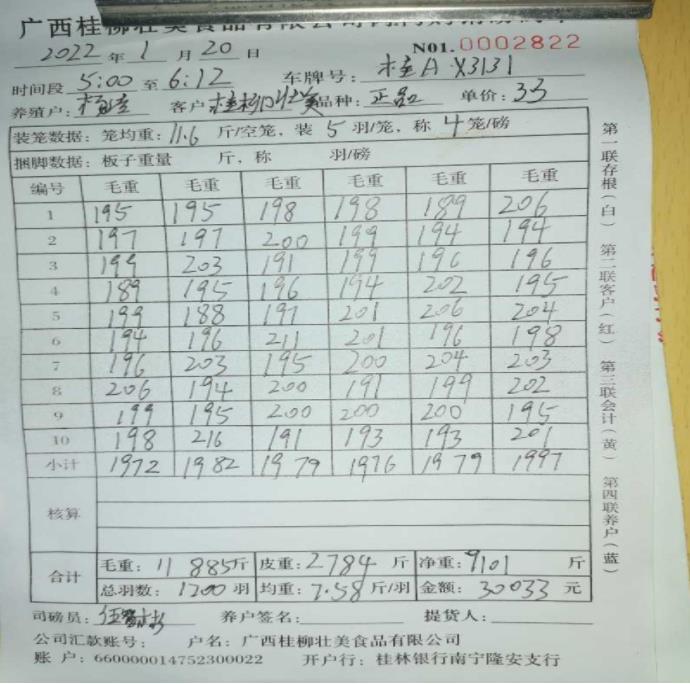 2022年1月20日 N01.0002822
时间段5:00至6:12 车牌号:桂A·X3131
养殖户: 客户 桂柳壮美 品种:正品 单价:33
装笼数据:笼均重:11.6斤/空笼,装5羽/笼,称4笼/磅
捆脚数据:板子重量 斤,称 羽/磅
编号 毛重 毛重 毛重 毛重 毛重 毛重
1 195 195 198 198 189 206
2 197 197 200 199 194 194
3 199 203 191 199 196 196
4 189 195 196 194 202 195
5 199 188 197 201 206 204
6 194 196 211 201 196 198
7 196 203 195 200 204 203
8 206 194 200 191 199 202
9 199 195 200 200 200 195
10 198 216 191 193 193 201
小计 1972 1982 1979 1976 1979 1997
核算
合计 毛重:11885斤 皮重:2784斤 净重:9101斤
总羽数:1200羽 均重:7.58斤/羽 金额:30033元
司磅员: 养户签名: 提货人:
公司汇款账号: 户名:广西桂柳壮美食品有限公司
账 户:660000014752300022 开户行:桂林银行南宁隆安支行
第一联存根(白) 第二联客户(红) 第三联会计(黄) 第四联养户(蓝)